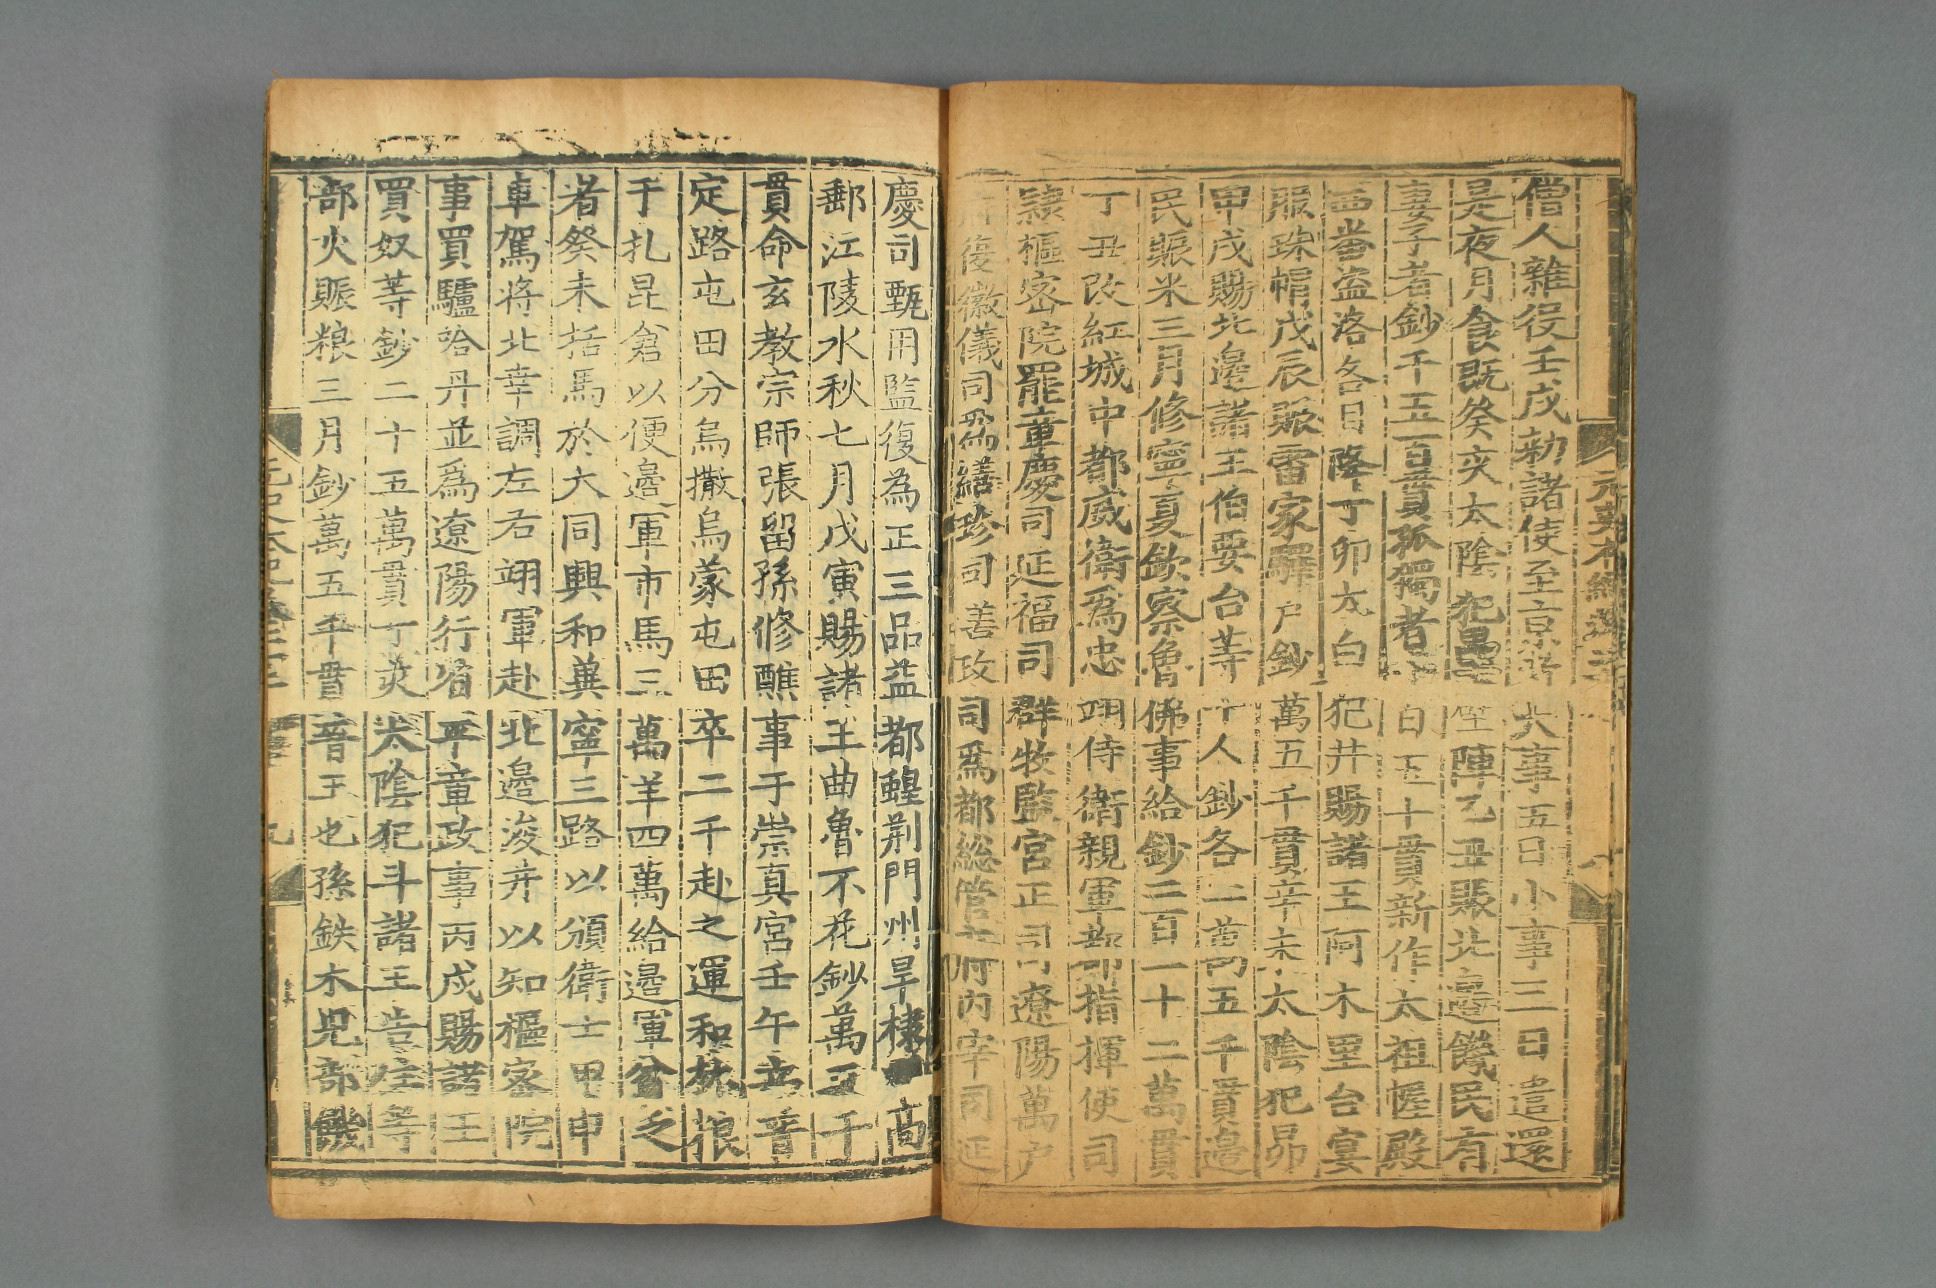 僧人雜役壬戌勑諸使至京者大事五日小事三日遣還
是夜月食既癸亥太陰犯壘壁陣乙丑賑北邊饑民有
妻子者鈔千五百貫孤獨者七百五十貫新作太祖幄殿
西番盜洛各目降丁卯太白犯井賜諸王阿木里台宴
服珠帽戊辰賑雷家驛戶鈔萬五千貫辛未太陰犯昴
甲戌賜北邊諸王伯要台等十人鈔各二萬五千貫邊
民賑米三月修寧夏欽察魯佛事給鈔二百一十二萬貫
丁丑改紅城中都威衛爲忠翊侍衛親軍都指揮使司
隷樞密院罷章慶司延福司群牧監宮正司遼陽萬户
府復徽儀司爲繕珍司善政司爲都総管府内宰司延
慶司甄用監復為正三品益都蝗荆門州旱棣 高
郵江陵水秋七月戊寅賜諸王曲魯不花鈔萬五千
貫命玄教宗師張留孫修醮事于崇真宮壬午立晉
定路屯田分烏撒烏蒙屯田卒二千赴之運和林粮
于扎昆倉以便邊軍市馬三萬羊四萬給邊軍貧乏
者癸未括馬於大同興和冀寧三路以頒衛士甲申
車駕將北幸調左右翊軍赴北邊浚井以知樞密院
事買驢哈丹並爲遼陽行省平章政事丙戌賜諸王
買奴等鈔二十五萬貫丁亥太陰犯斗諸王告住等
部火賑粮三月鈔萬五千貫晉王也孫鉄木兒部饑